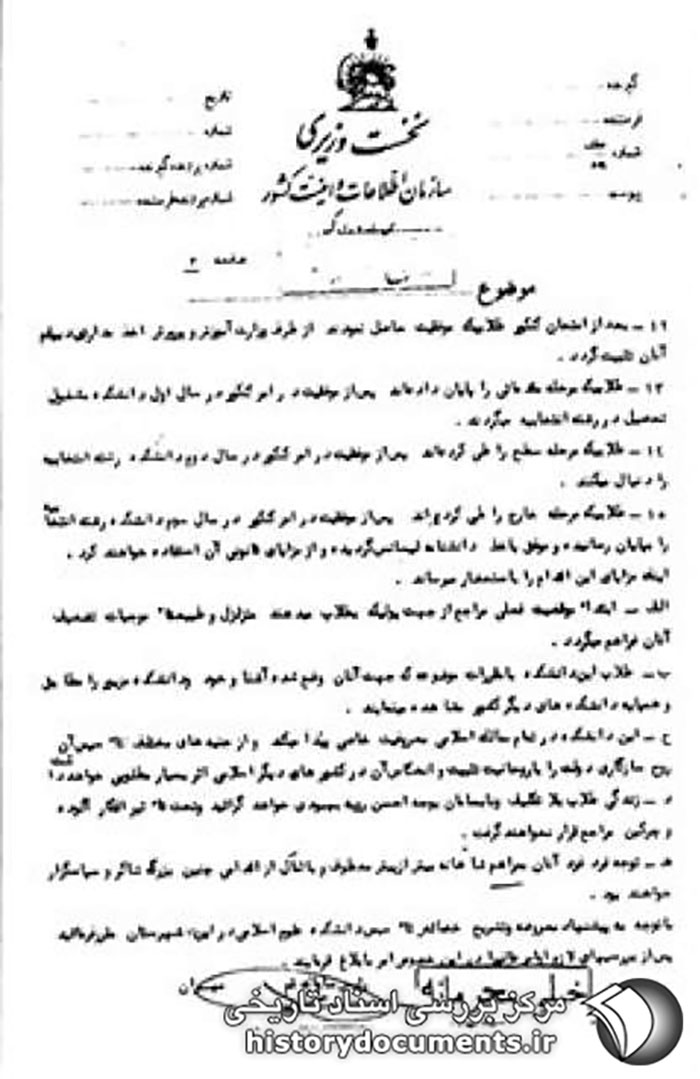 نخست وزیری
سازمان اطلاعات و امنیت کشور
گیرنده
فرستنده
شماره
پیوست
تاریخ
شماره
شماره پرونده گیرنده
شماره پرونده فرستنده
صفحه ۲
موضوع
۱۲ ـ بعد از امتحان کنکور طلابیکه موفقیت حاصل نمودند از طرف وزارت آموزش و پرورش اخذ مدارک دیپلم
آنان تثبیت گردد .
۱۳ ـ طلابیکه مرحله مقدماتی را پایان داده‌اند پس از موفقیت در امر کنکور در سال اول دانشکده مشغول
تحصیل در رشته انتخابیه میگردند .
۱۴ ـ طلابیکه مرحله سطح را طی کرده‌اند پس از موفقیت در امر کنکور در سال دوم دانشکده رشته انتخابیه
را دنبال میکنند .
۱۵ ـ طلابیکه مرحله خارج را طی کرده‌اند پس از موفقیت در امر کنکور در سال سوم دانشکده رشته انتخابیه
را بپایان رسانیده و موفق باخذ دانشنامه لیسانس گردیده و از مزایای قانونی آن استفاده خواهند کرد .
اینک مزایای این اقدام را باستحضار میرساند .
الف ـ ابتدا موقعیت فعلی مراجع از جهت پولیکه بطلاب میدهند متزلزل و طبیعتا" موجبات تضعیف
آنان فراهم میگردد .
ب ـ طلاب این دانشکده با نظریات موضوعه که جهت آنان وضع شده آشنا و خود و دانشکده مزبور را مقابل
و همپایه دانشکده های دیگر کشور مشاهده مینمایند .
ج ـ این دانشکده در تمام ممالک اسلامی معروفیت خاصی پیدا میکند و از جنبه های مختلف تاسیس آن
روح سازگاری دولت را با روحانیت تثبیت و انعکاس آن در کشور های دیگر اسلامی اثر بسیار مطلوبی خواهد داشت
د ـ زندگی طلاب بلا تکلیف و نابسامان بوجه احسن رو به بهبودی خواهد گرائید و تحت تاثیر افکار آلوده
و چرکین مراجع قرار نخواهند گرفت .
ه ـ توجه فرد فرد آنان بمراحم شاهانه بیش از پیش معطوف و از اقدامی چنین بزرگ شاکر و سپاسگزار
خواهند بود .
با توجه به پیشنهاد معروضه و تشریح خصائص تاسیس دانشکده علوم اسلامی در این شهرستان
پس از بررسیهای لازم در این خصوص امر بابلاغ فرمایند .
مرکز بررسی اسناد تاریخی
historydocuments.ir